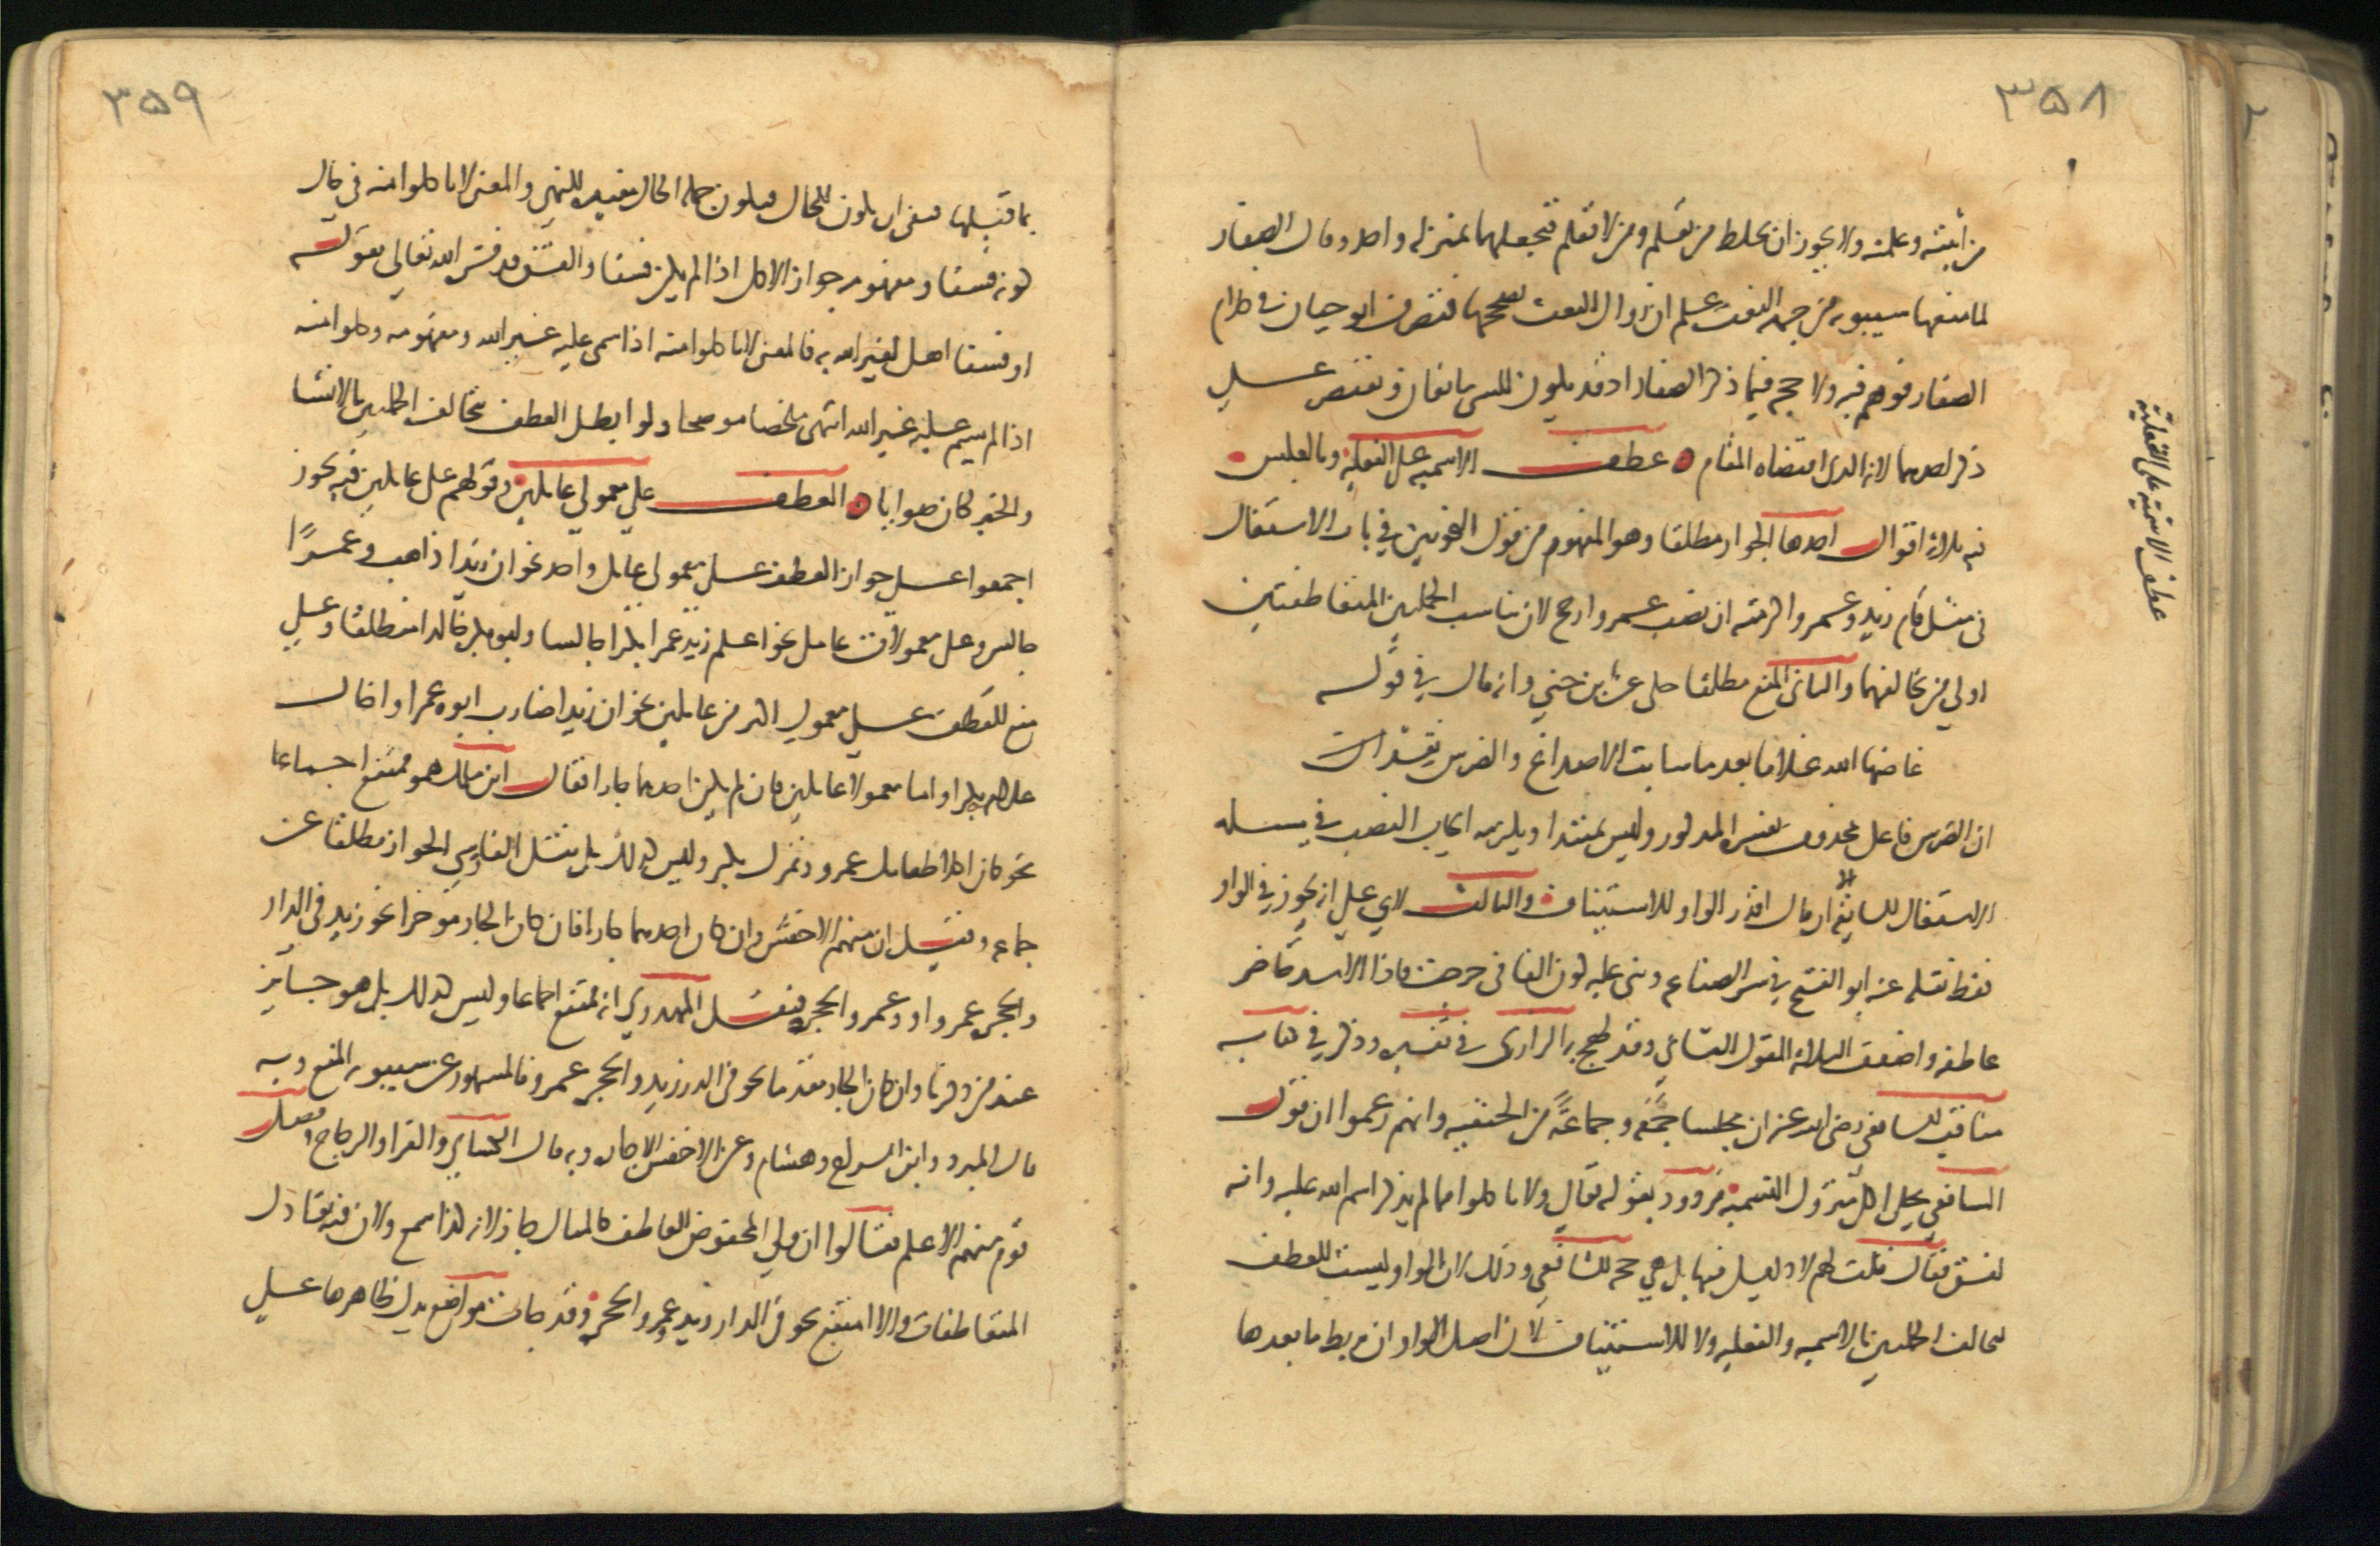 ٣٥٨
من اثبته وعلمته ولا يجوز ان تخلط من تعلم ومن لا تعلم فتجعلهما بمنزلة واحده وقال الصفار
لما منعها سيبويه من جهة النعت علم ان زوال النعت يصححها فتصرف ابو حيان في كلام
الصفار فوهم فيه ولا حجة فيما ذكر الصفار اذ قد يكون للشي مانعان ويقتصر علي
ذكر احدهما لانه الذي اقتضاه المقام عطف الاسميه على الفعليه وبالعكس
فيه ثلاثة اقوال احدها الجواز مطلقا وهو المفهوم من قول النحويين في باب الاشتغال
في مثل قام زيد وعمروا اكرمته ان نصب عمروا ارجح لان تناسب الجملتين المتعاطفتين
اولي من تخالفهما والثاني المنع مطلقا حكي عن ابن جني وانه قال في قوله
عاضها الله غلاما بعد ما شابت الاصداغ والضرس نقد
ان الضرس فاعل بمحذوف يفسره المذكور وليس بمبتدا ويلزمه ايجاب النصب في مسله
الاشتغال السابقة الا ان قال اقدر الواو للاستيناف والثالث لابي علي انه يجوز في الواو
فقط نقله عنه ابو الفتح في سر الصناعه وبني عليه كون الفا في خرجت فاذا الاسد حاضر
عاطفه واضعف الثلاثه القول الثاني وقد لهج به الرازي في تفسيره وذكر في كتابه
مناقب الشافعي رضي الله عنه ان مجلسا جمعه وجماعة من الحنفيه وانهم زعموا ان قول
الشافعي يحل اكل متروك التسميه مردود بقوله تعالي ولا تاكلوا مما لم يذكر اسم الله عليه وانه
لفسق فقال فقلت لهم لا دليل فيها بل هي حجة للشافعي وذلك لان الواو ليست للعطف
لتخالف الجملتين بالاسميه والفعليه ولا للاستيناف لان اصل الواو ان تربط ما بعدها
عطف الاسمية على الفعلية
٣٥٩
بما قبلها فبقي ان يكون للحال فيكون جملة الحال مقيده للنهي والمعنى لا تاكلوا منه في حال
كونه فسقا ومفهومه جواز الاكل اذا لم يكن فسقا والفسق قد فسره الله تعالي بقوله
او فسقا اهل لغير الله به فالمعنى لا تاكلوا منه اذا سمي عليه غير الله ومفهومه وكلوا منه
اذا لم يسم عليه غير الله انتهى ملخصا موضحا ولو ابطل العطف بتخالف الجملتين بالانشا
والخبر كان صوابا العطف علي معمولي عاملين وقولهم على عاملين فيه تجوز
اجمعوا علي جواز العطف علي معمولي عامل واحد نحو ان زيدا ذاهب وعمرًا
جالس وعلى معمولات عامل نحو اعلم زيد عمرا بكرا جالسا وابو بكر خالدا منطلقا وعلي
منع العطف علي معمولي اكثر من عاملين نحو ان زيدا ضارب ابوه عمرا واخاك
غلامه بكرا واما معمولا عاملين فان لم يكن احدهما جارا فقال ابن مالك هو ممتنع اجماعا
نحو كان اكلا طعامك عمرو وتمرك بكر وليس كذلك بل نقل الفارسي الجواز مطلقا عن
جماعه وقيل ان منهم الاخفش وان كان احدهما جارا فان كان الجار مؤخرا نحو زيد في الدار
والحجره عمرو او وعمرو الحجره فنقل المهدوي انه ممتنع اجماعا وليس كذلك بل هو جايز
عند من ذكرنا وان كان الجار مقدما نحو في الدار زيد والحجره عمرو فالمشهور عن سيبويه المنع وبه
قال المبرد وابن السراج وهشام وعن الاخفش الاجازه وبه قال الكساي والفرا والزجاج وفصل
قوم منهم الاعلم فقالوا ان ولي المخفوض العاطف كالمثال جاز لانه كذا سمع ولان فيه تعادل
المتعاطفات والا امتنع نحو في الدار زيد وعمرو الحجره وقد جات مواضع يدل ظاهرها علي